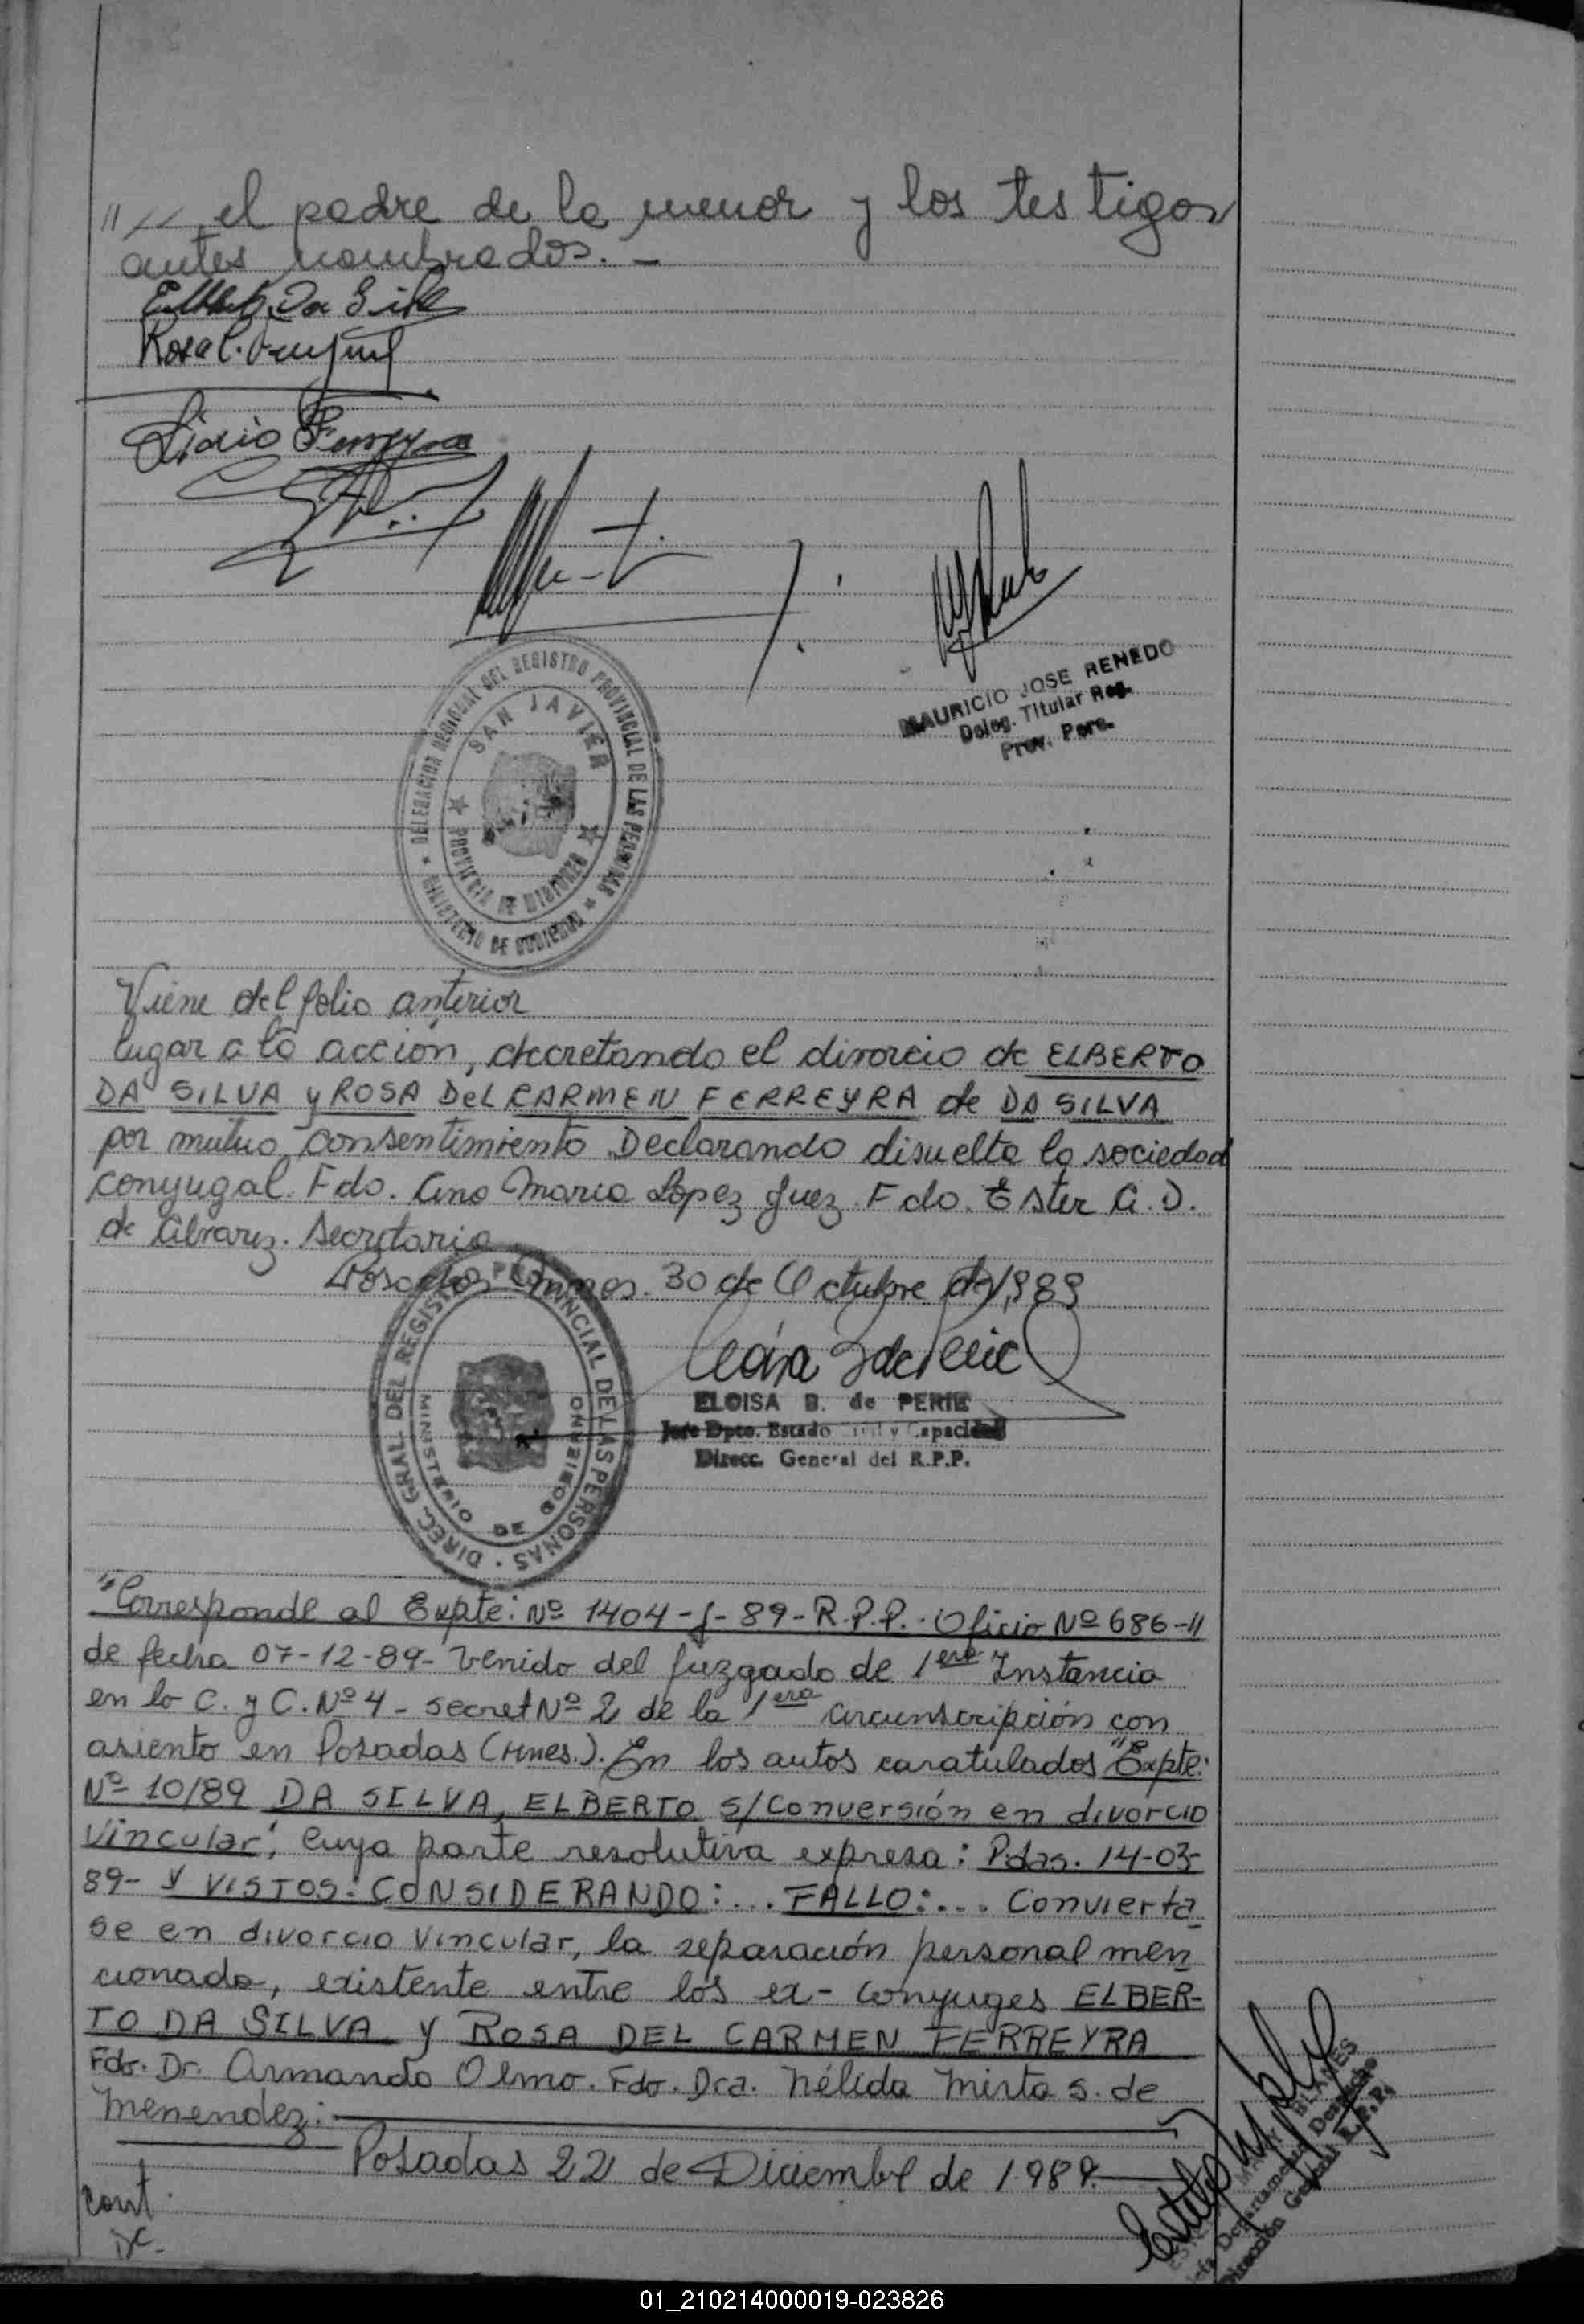 "// el padre de la menor y los testigos
antes nombrados. -
Rosa C.
Lidio Ferreyra
MAURICIO JOSE RENEDO
Deleg. Titular Reg.
Prov. Pers.
DELEGACION REGIONAL DEL REGISTRO PROVINCIAL DE LAS PERSONAS
SAN JAVIER
PROVINCIA DE MISIONES
MINISTERIO DE GOBIERNO
Viene del folio anterior
lugar a la acción, decretando el divorcio de ELBERTO
DA SILVA y ROSA DEL CARMEN FERREYRA de DA SILVA
por mutuo consentimiento Declarando disuelta la sociedad
conyugal. Fdo. Ana Maria Lopez Juez. Fdo. Ester A. D.
de Alvarez. Secretaria
Posadas Mnes. 30 de Octubre de 1989
ELOISA B. de PERIE
Jefe Dpto. Estado Civil y Capacidad
Direcc. General del R.P.P.
DIREC. GRAL. DEL REGISTRO PROVINCIAL DE LAS PERSONAS
MINISTERIO DE GOBIERNO
"Corresponde al Expte: Nº 1404-J-89-R.P.P.- Oficio Nº 686-11
de fecha 07-12-89- Venido del Juzgado de 1era Instancia
en lo C. y C. Nº 4 - Secret Nº 2 de la 1era circunscripción con
asiento en Posadas (Mnes.). En los autos caratulados "Expte:
Nº 10/89 DA SILVA, ELBERTO S/Conversión en divorcio
Vincular", Cuya parte resolutiva expresa: Pdas. 14-03-
89- Y VISTOS: CONSIDERANDO: ... FALLO: ... Convierta
se en divorcio Vincular, la separación personal men
cionada, existente entre los ex-conyuges ELBER-
TO DA SILVA y ROSA DEL CARMEN FERREYRA
Fdo. Dr. Armando Olmo. Fdo. Dra. Nélida Mirta S. de
Menendez:
Posadas 22 de Diciembre de 1.989.
cont.
Departamento Despacho
Dirección General R.P.P.
01_210214000019-023826